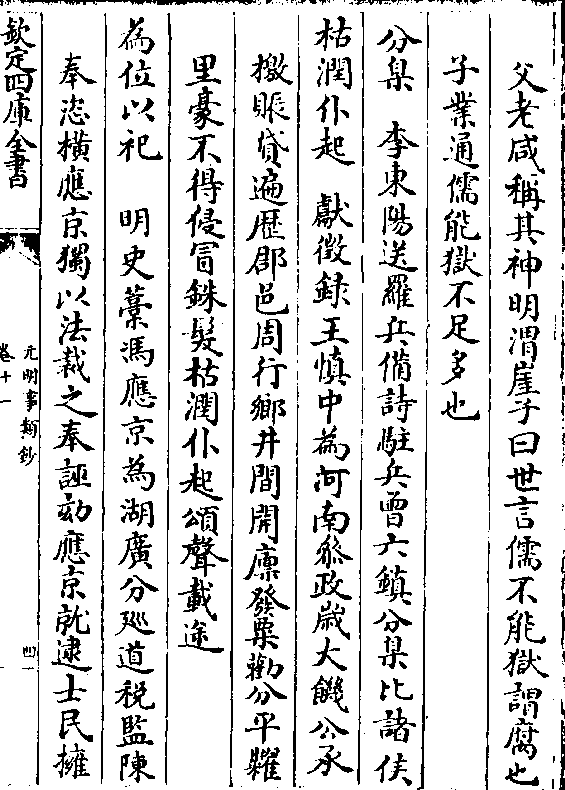 父老咸稱其神明渭崖子曰世言儒不能獄謂腐也
子業通儒能獄不足多也
分臬　李東陽送羅兵備詩駐兵曹六鎮分臬比諸侯
枯潤仆起　獻徵録王慎中為河南叅政歲大饑公承
檄賑貸遍歴郡邑周行鄉井間開廩發粟勸分平糶
里豪不得侵冒銖髮枯潤仆起頌聲載途
為位以祀　明史藁馮應京為湖廣分廵道税監陳
奉恣横應京獨以法裁之奉誣劾應京就逮士民擁
欽定四庫全書
元明事類鈔
卷十一
四